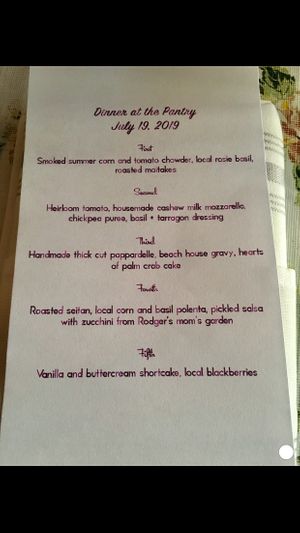 Dinner at the Pantry
July 19, 2019
First
Smoked summer corn and tomato chowder, local rosie basil,
roasted maitakes
Second
Heirloom tomato, housemade cashew milk mozzarella,
chickpea puree, basil + tarragon dressing
Third
Handmade thick cut pappardelle, beach house gravy, hearts
of palm crab cake
Fourth
Roasted seitan, local corn and basil polenta, pickled salsa
with zucchini from Rodger's mom's garden
Fifth
Vanilla and buttercream shortcake, local blackberries